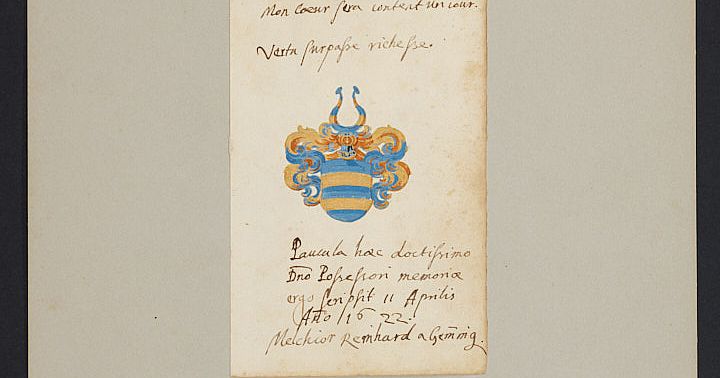 Mon Coeur sera content un iour.
Vertu surpasse richesse.
Paucula haec doctissimo
Dño Possessori memoriæ
ergo scripsit 11 Aprilis
Año 1622.
Melchior Reinhard a Gem̃ing.